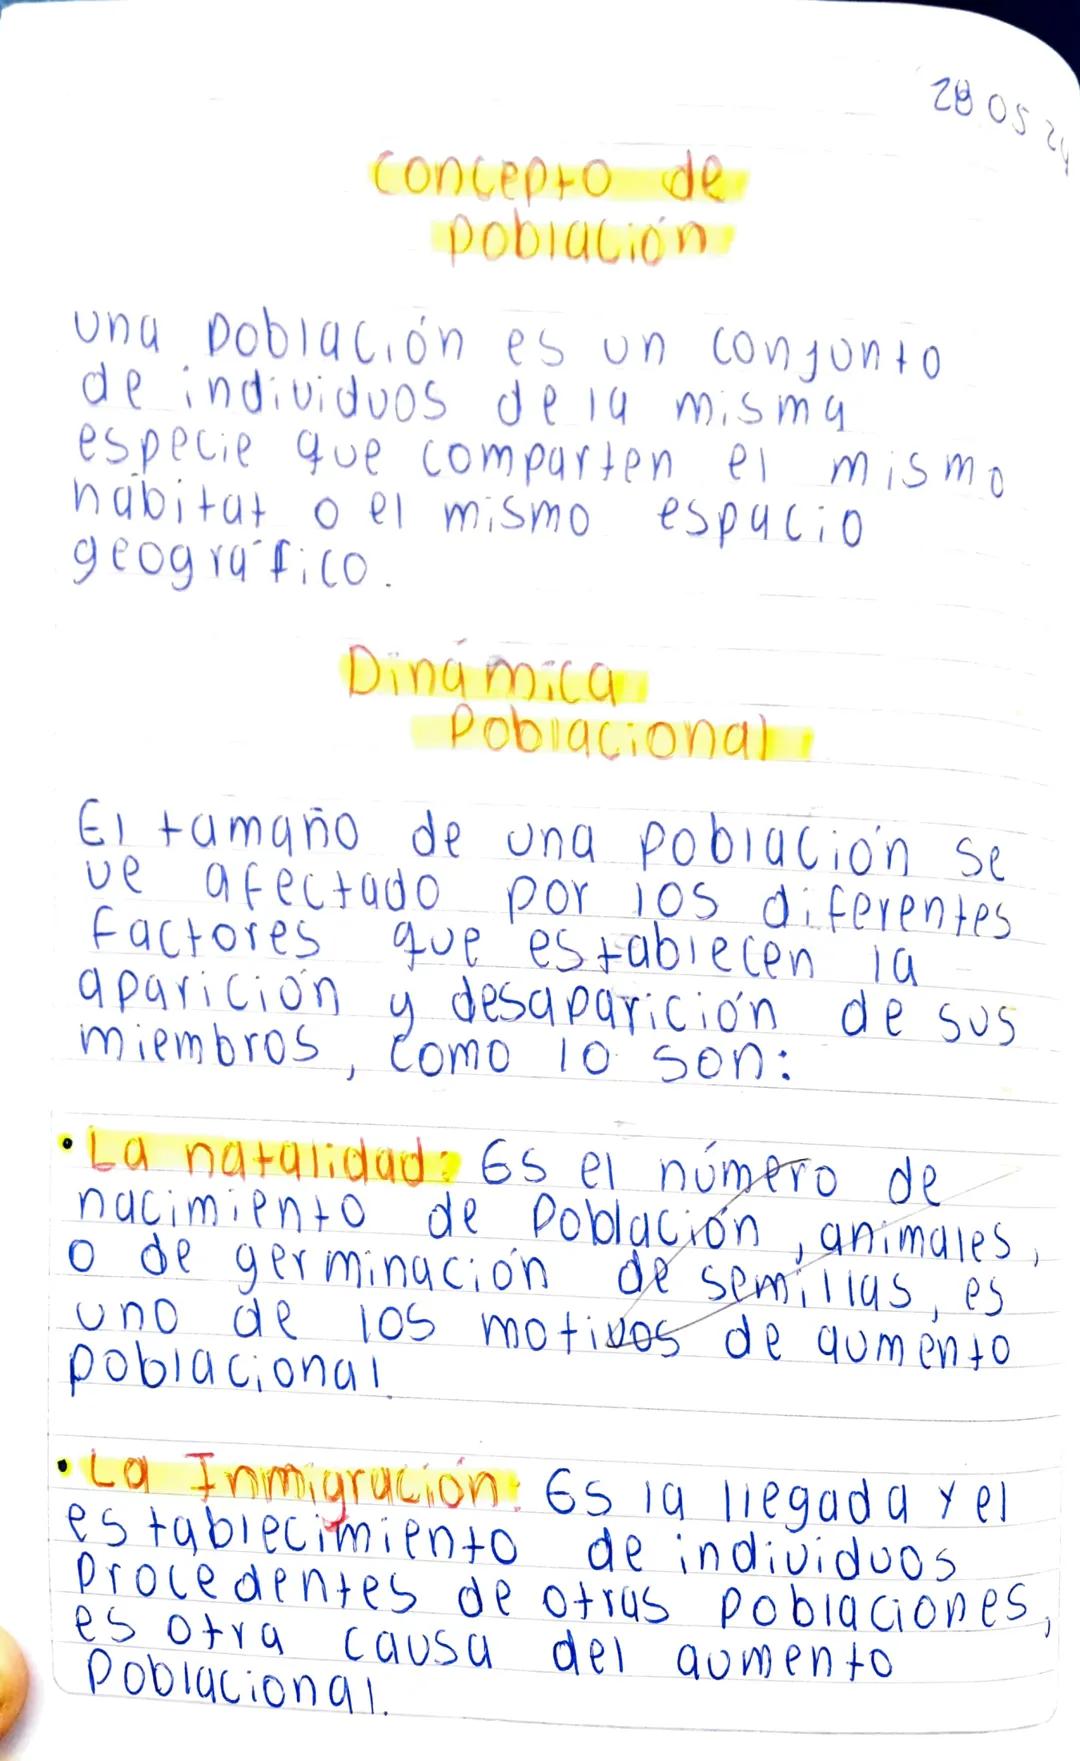 28 05 24
Concepto de
población
una población es un conjunto
de individuos de la misma
especie que comparten el mismo
hábitat o el mismo espacio
geográfico.
Dinámica
Poblacional
El tamaño de una población se
ve afectado por los diferentes
factores que establecen la
aparición y desaparición de sus
miembros, como lo son:
• La natalidad: Es el número de
nacimiento de población, animales,
o de germinación de semillas, es
uno de los motivos de aumento
poblacional.
• La Inmigración: Es la llegada y el
establecimiento de individuos
procedentes de otras poblaciones,
es otra causa del aumento
Poblacional.